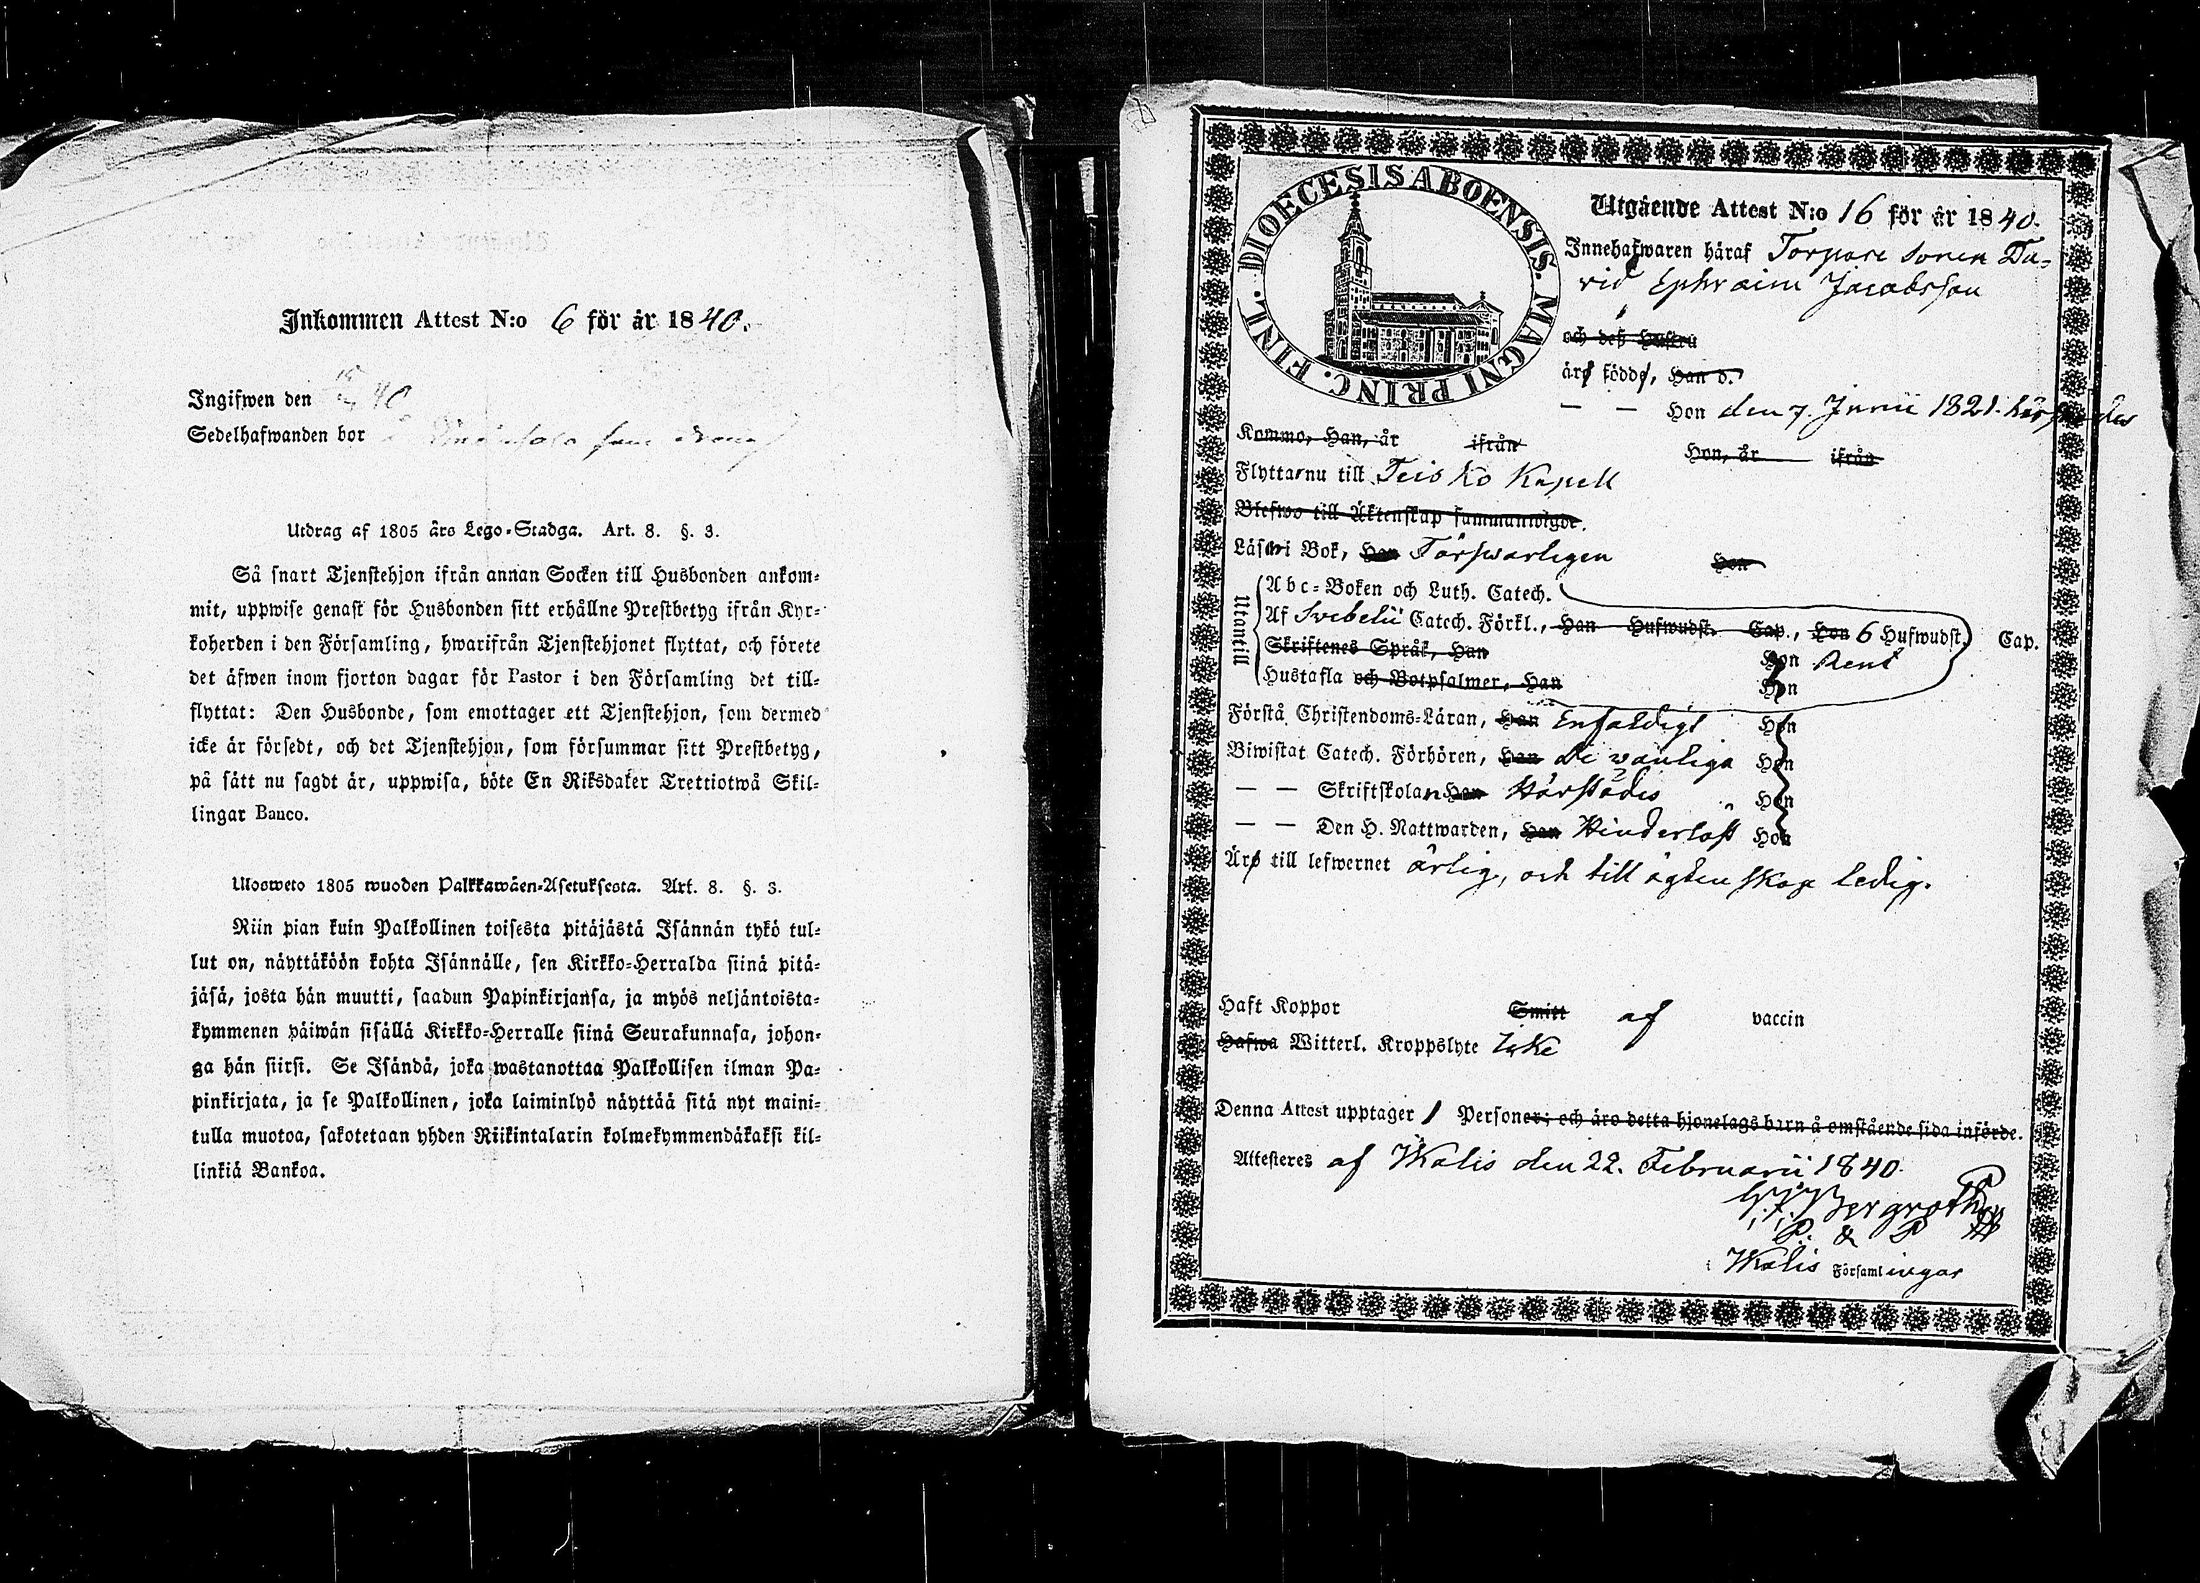 Inkommen Attest N:o 6 för år 1840.
Ingifwen den 40
Sedelhafwanden bor som dräng
Utdrag af 1805 års Lego-Stadga. Art. 8. §. 3.
Så snart Tjenstehjon ifrån annan Socken till Husbonden ankom-
mit, uppwise genast för Husbonden sitt erhållne Prestbetyg ifrån Kyr-
koherden i den Församling, hwarifrån Tjenstehjonet flyttat, och förete
det äfwen inom fjorton dagar för Pastor i den Församling det till-
flyttat: Den Husbonde, som emottager ett Tjenstehjon, som dermed
icke är försedt, och det Tjenstehjon, som försummar sitt Prestbetyg,
på sätt nu sagdt är, uppwisa, böte En Riksdaler Trettiotwå Skil-
lingar Banco.
Ulosweto 1805 wuoden Palkkawäen-Asetuksesta. Art. 8. §. 3.
Niin pian kuin Palkollinen toisesta pitäjästä Isännän tykö tul-
lut on, näyttäköön kohta Isännälle, sen Kirkko-Herralda siinä pitä-
jäsä, josta hän muutti, saadun Papinkirjansa, ja myös neljäntoista-
kymmenen päiwän sisällä Kirkko-Herralle siinä Seurakunnasa, johon-
ga hän siirsi. Se Isändä, joka wastanottaa Palkollisen ilman Pa-
pinkirjata, ja se Palkollinen, joka laiminlyö näyttää sitä nyt maini-
tulla muotoa, sakotetaan yhden Riikintalarin kolmekymmendäkaksi kil-
linkiä Bankoa.
DIOECESIS ABOENSIS. MAGNI PRINC. FINL.
Utgående Attest N:o 16 för år 1840.
Innehafwaren häraf Torpare sonen Da-
vid Ephraim Jacobsson
och deß hustru
äro födde, Han d.
— — Hon den 7. Junii 1821. härstädes
Kommo, Han, år ifrån Hon, år ifrån
Flyttar nu till Teisko Kapell
Blefwo till Äktenskap sammanwigde.
Läser i Bok, Han Försvarligen Hon
Utantill
Abc-Boken och Luth. Catech.
Af Svebelii Catech. Förkl., Han Hufwudst. Cap., Hon 6 Hufwudst. Cap.
Skriftenes Språk, Han Hon Rent
Hustafla och Botpsalmer, Han Hon
Förstå Christendoms-Läran, Han Enfaldigt Hon
Biwistat Catech. Förhören, Han De vanliga Hon
— — Skriftskolan Han Härstädes Hon
— — Den H. Nattwarden, Han Hinderlöst Hon
Äro till lefwernet ärlig, och till ägtenskap ledig.
Haft Koppor Smitt af vaccin
Hafwa Witterl. Kroppslyte Icke
Denna Attest upptager 1 Personer; och äro detta hjonelags barn å omstående sida införde.
Attesteres af Walis den 22. Februarii 1840.
Bergroth
P. & P
i Walis Församlingar